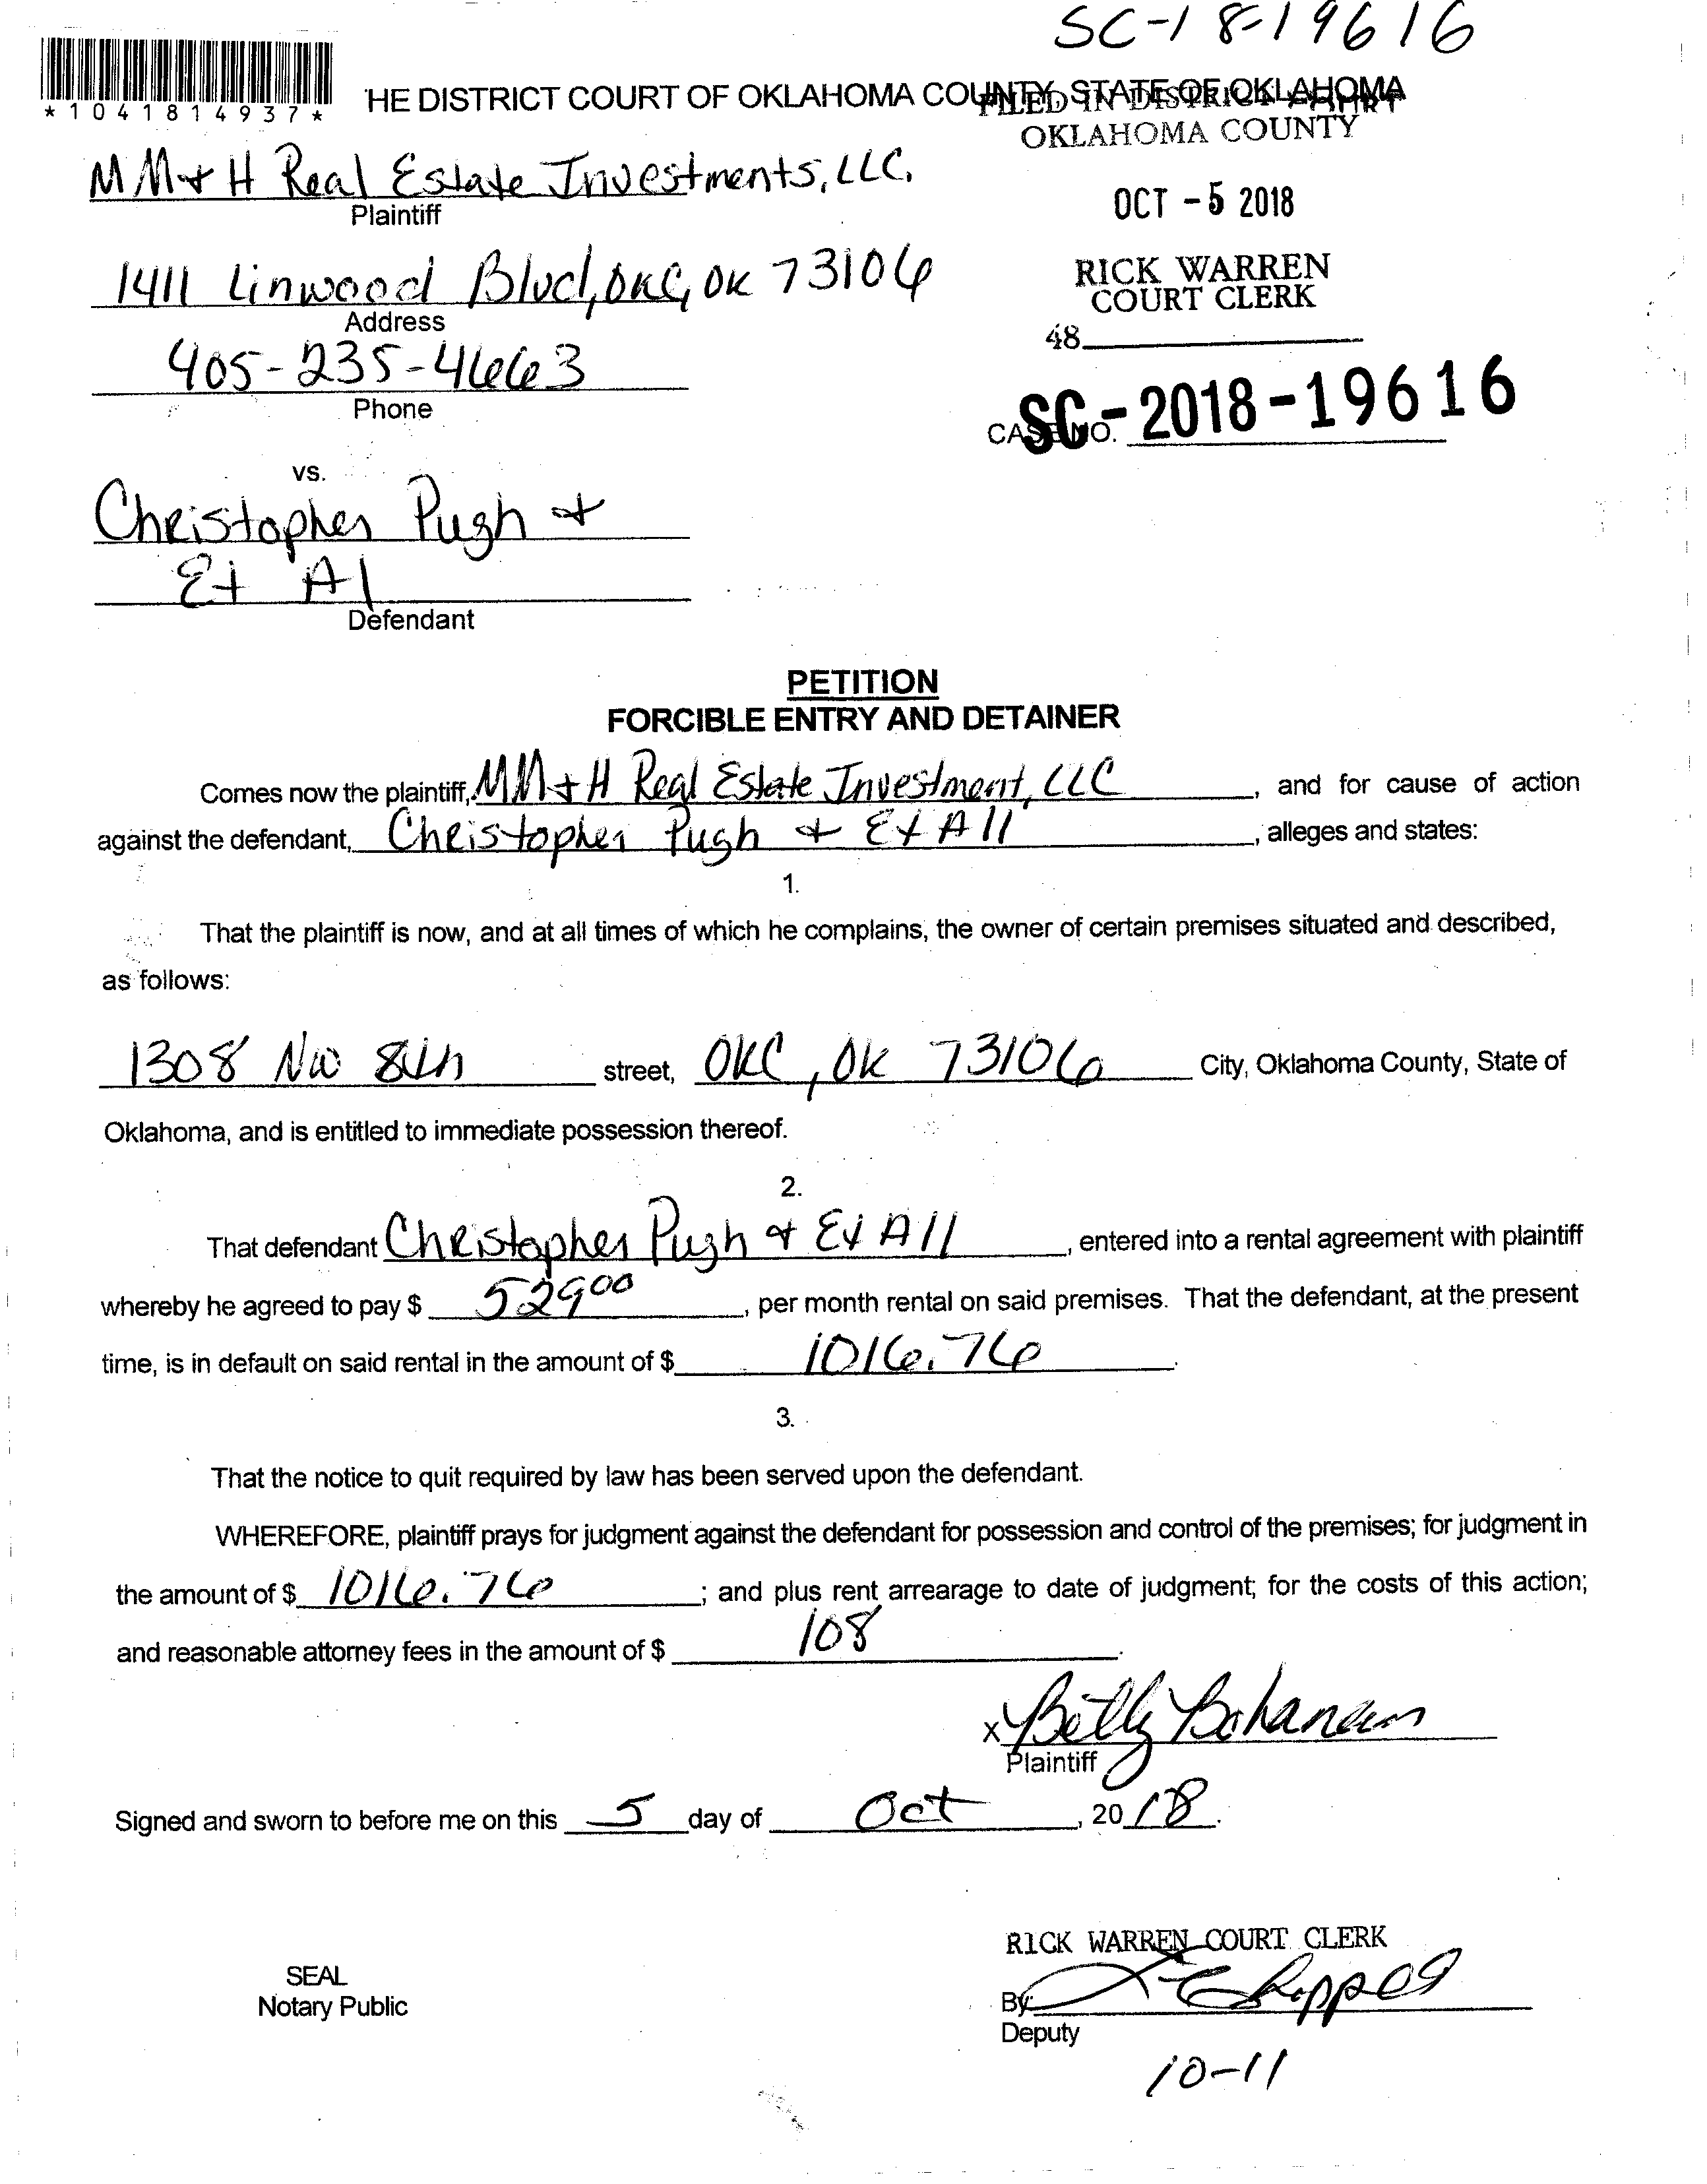 SC-18-19616
*1041814937*
HE DISTRICT COURT OF OKLAHOMA COUNTY, STATE OF OKLAHOMA
FILED IN DISTRICT COURT
OKLAHOMA COUNTY
MM+H Real Estate Investments, LLC.
Plaintiff
OCT -5 2018
1411 Linwood Blvd, OKC, OK 73106
Address
RICK WARREN
COURT CLERK
48
405-235-4663
Phone
CASE NO. SC-2018-19616
vs.
Christopher Pugh +
Et Al
Defendant
PETITION
FORCIBLE ENTRY AND DETAINER
Comes now the plaintiff, MM+H Real Estate Investment, LLC, and for cause of action
against the defendant, Christopher Pugh + Et All, alleges and states:
1.
That the plaintiff is now, and at all times of which he complains, the owner of certain premises situated and described,
as follows:
1308 NW 8th street, OKC, OK 73106 City, Oklahoma County, State of
Oklahoma, and is entitled to immediate possession thereof.
2.
That defendant Christopher Pugh + Et All, entered into a rental agreement with plaintiff
whereby he agreed to pay $ 529 00, per month rental on said premises. That the defendant, at the present
time, is in default on said rental in the amount of $ 1016.76.
3.
That the notice to quit required by law has been served upon the defendant.
WHEREFORE, plaintiff prays for judgment against the defendant for possession and control of the premises; for judgment in
the amount of $ 1016.76; and plus rent arrearage to date of judgment; for the costs of this action;
and reasonable attorney fees in the amount of $ 108.
X Betty Bohanan
Plaintiff
Signed and sworn to before me on this 5 day of Oct, 2018.
RICK WARREN COURT CLERK
SEAL
Notary Public
By:
Deputy
10-11